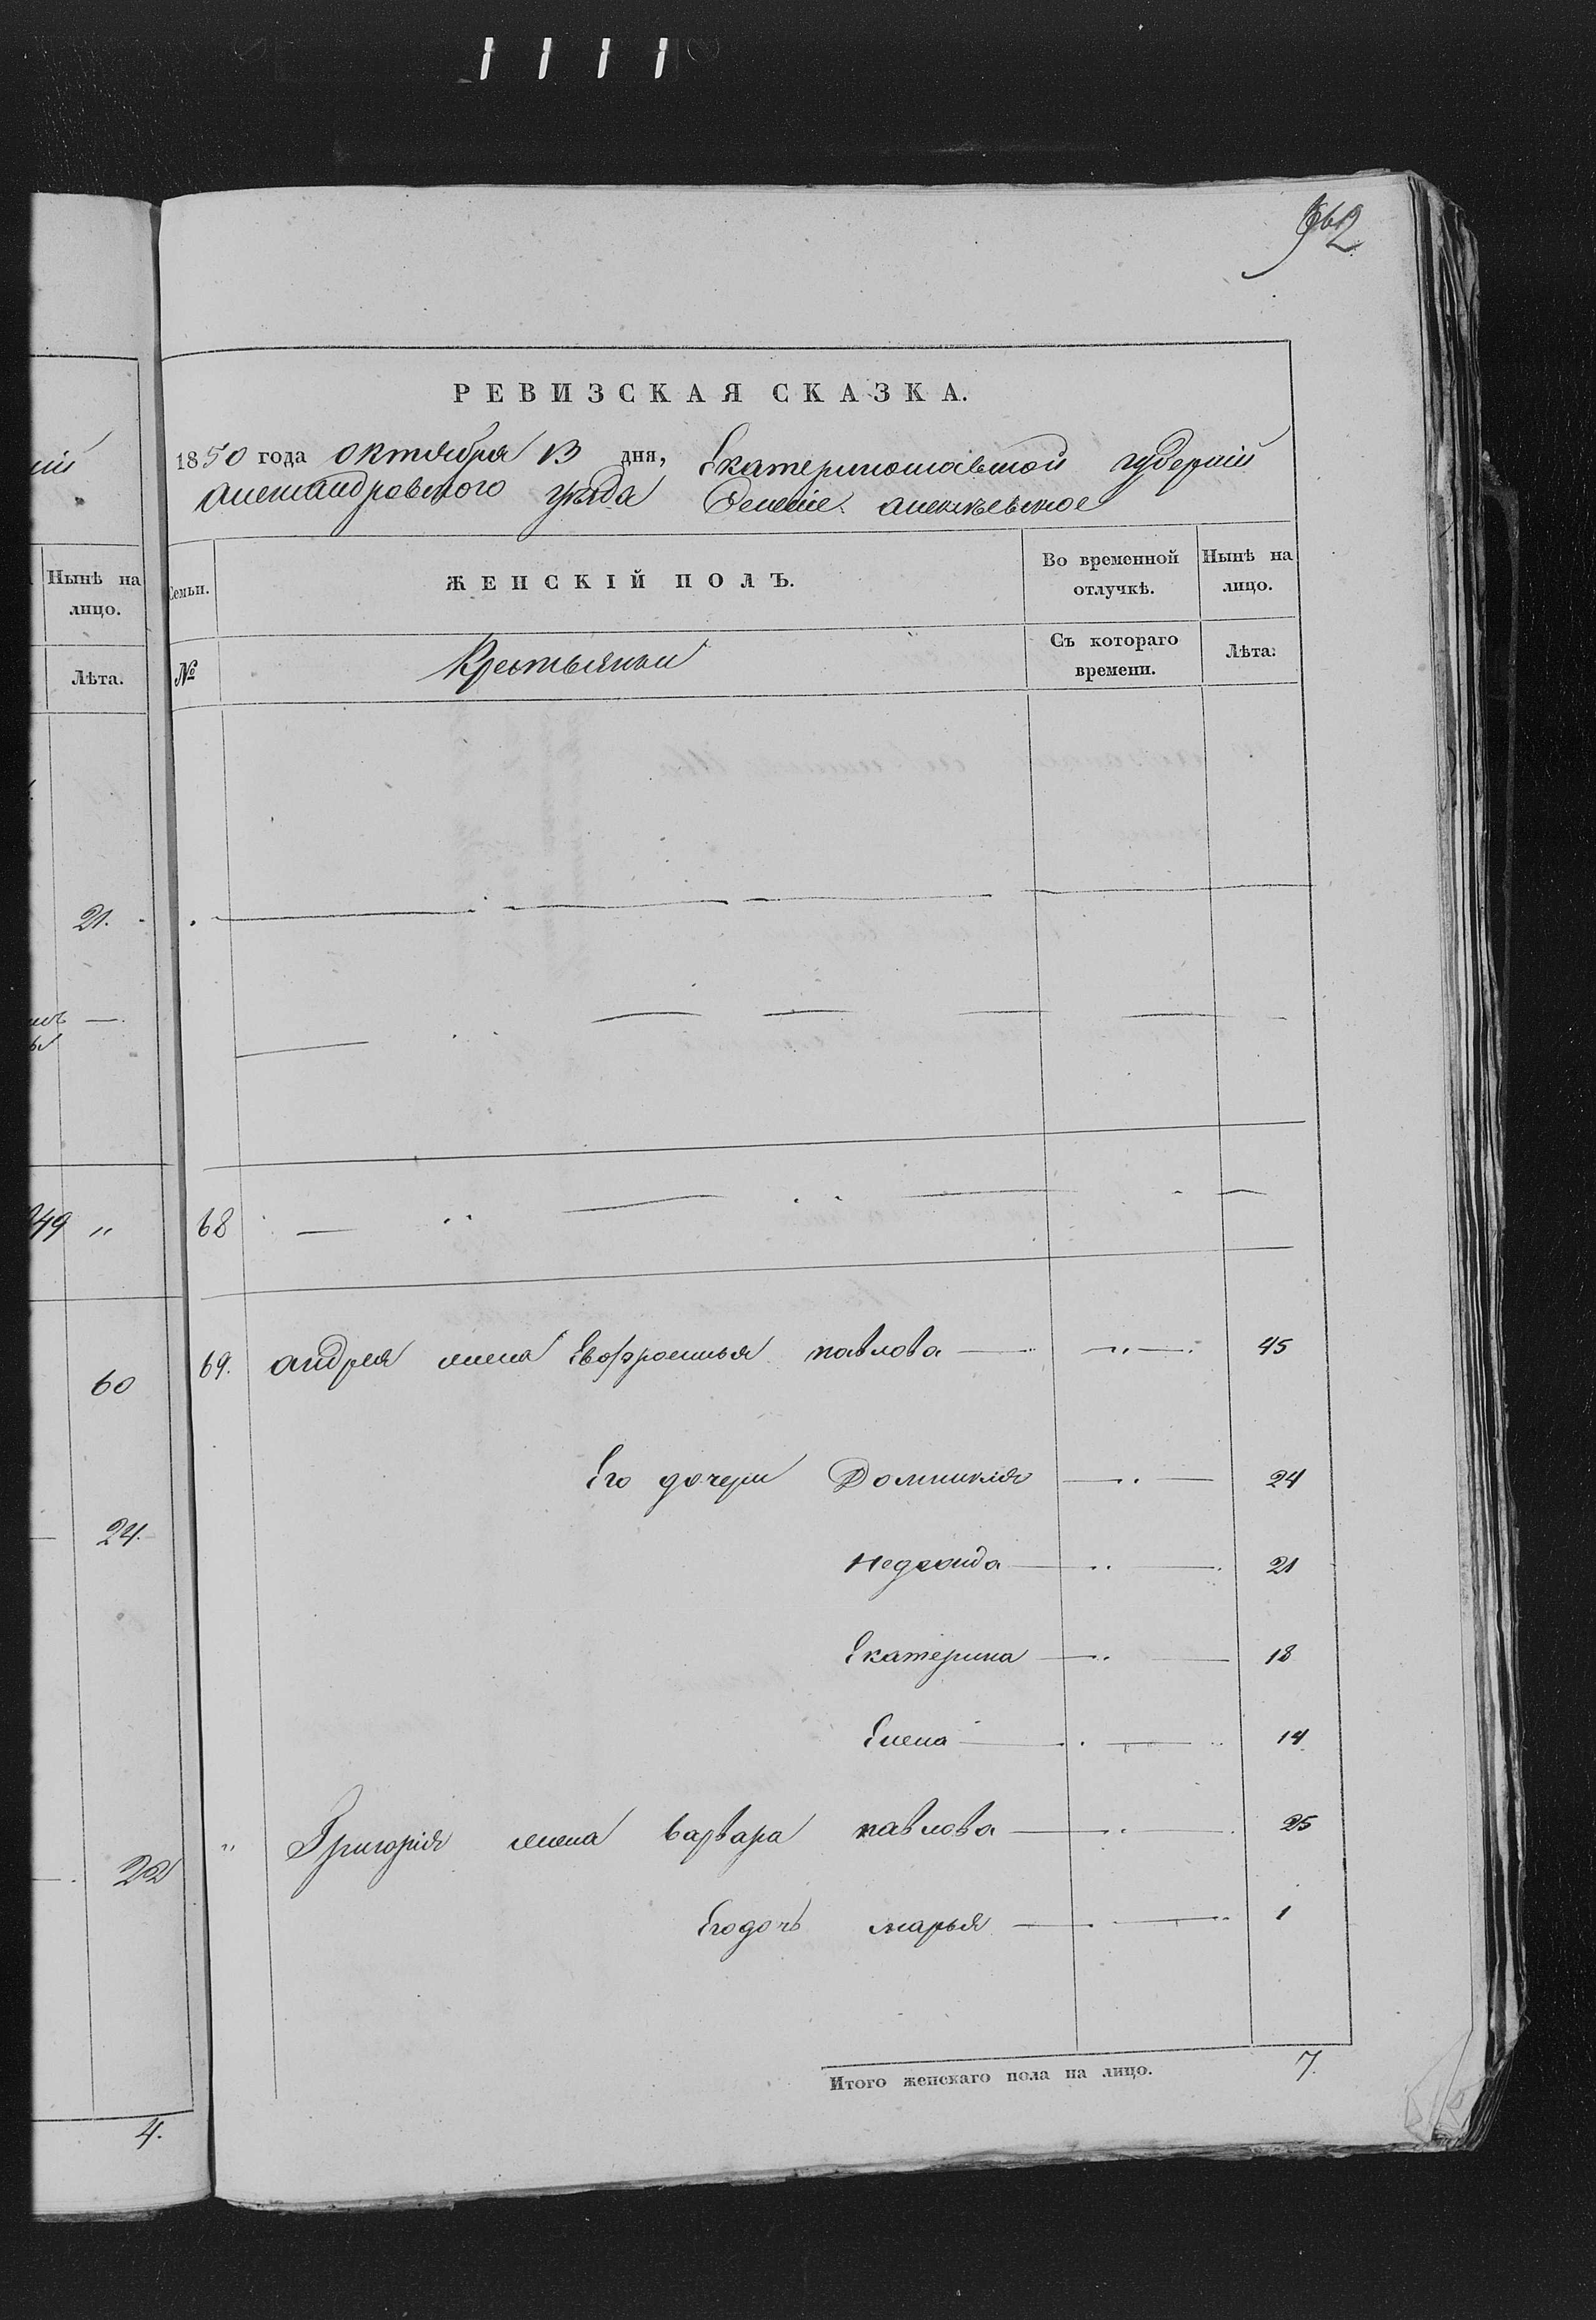 362
РЕВИЗСКАЯ СКАЗКА.
1850 года октября 13 дня, Екатериношавской губерніи
александровского уѣзда Селеніе алексѣевское
Нынѣ на лицо.
Лѣта.
21.
49 „
60
24.
22
4.
Семьи.
ЖЕНСКІЙ ПОЛЪ.
Во временной отлучкѣ.
Нынѣ на лицо.
№
Крестьянки
Съ котораго времени.
Лѣта:
68
69. андрея жена Евфросинья павлова — 45
Его дочери Домникия — 24
18
Екатерина
Елена — 14
„ Григорія жена варвара павлова — 25
Егодочь марья — 1
Итого женскаго пола на лицо. 7.